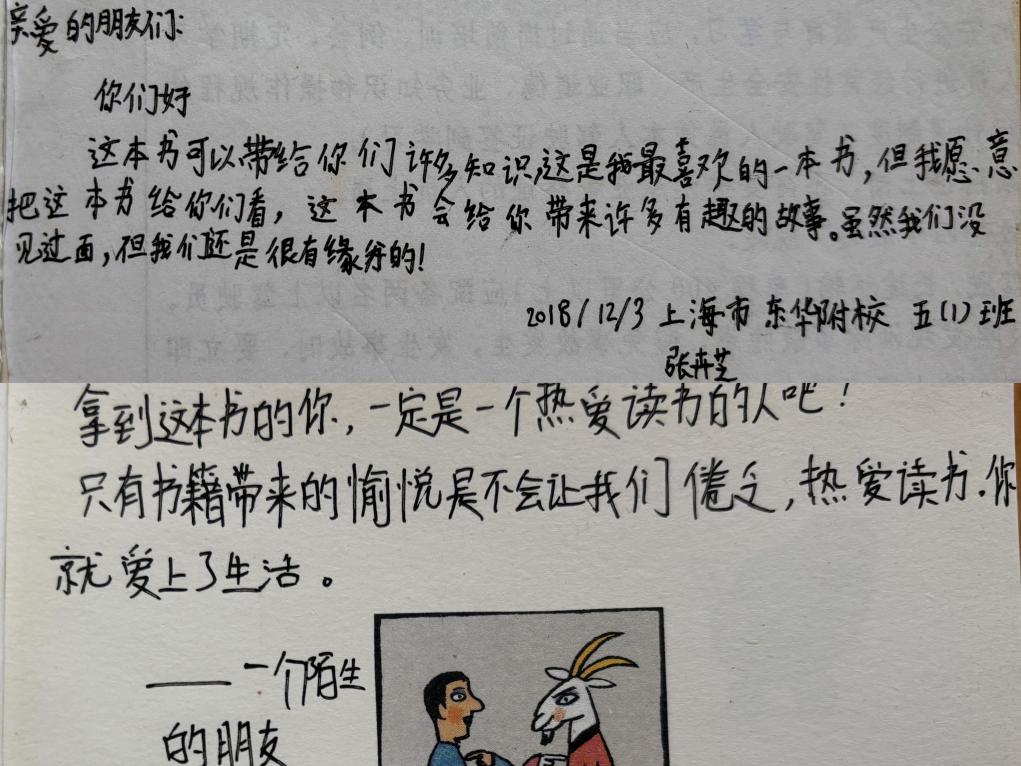 亲爱的朋友们:
你们好
这本书可以带给你们许多知识,这是我最喜欢的一本书,但我愿意
把这本书给你们看,这本书会给你带来许多有趣的故事。虽然我们没
见过面,但我们还是很有缘分的!
2018/12/3 上海市东华附校 五(1)班
张卉芝
拿到这本书的你,一定是一个热爱读书的人吧!
只有书籍带来的愉悦是不会让我们倦乏,热爱读书.你
就爱上了生活。
——一个陌生
的朋友